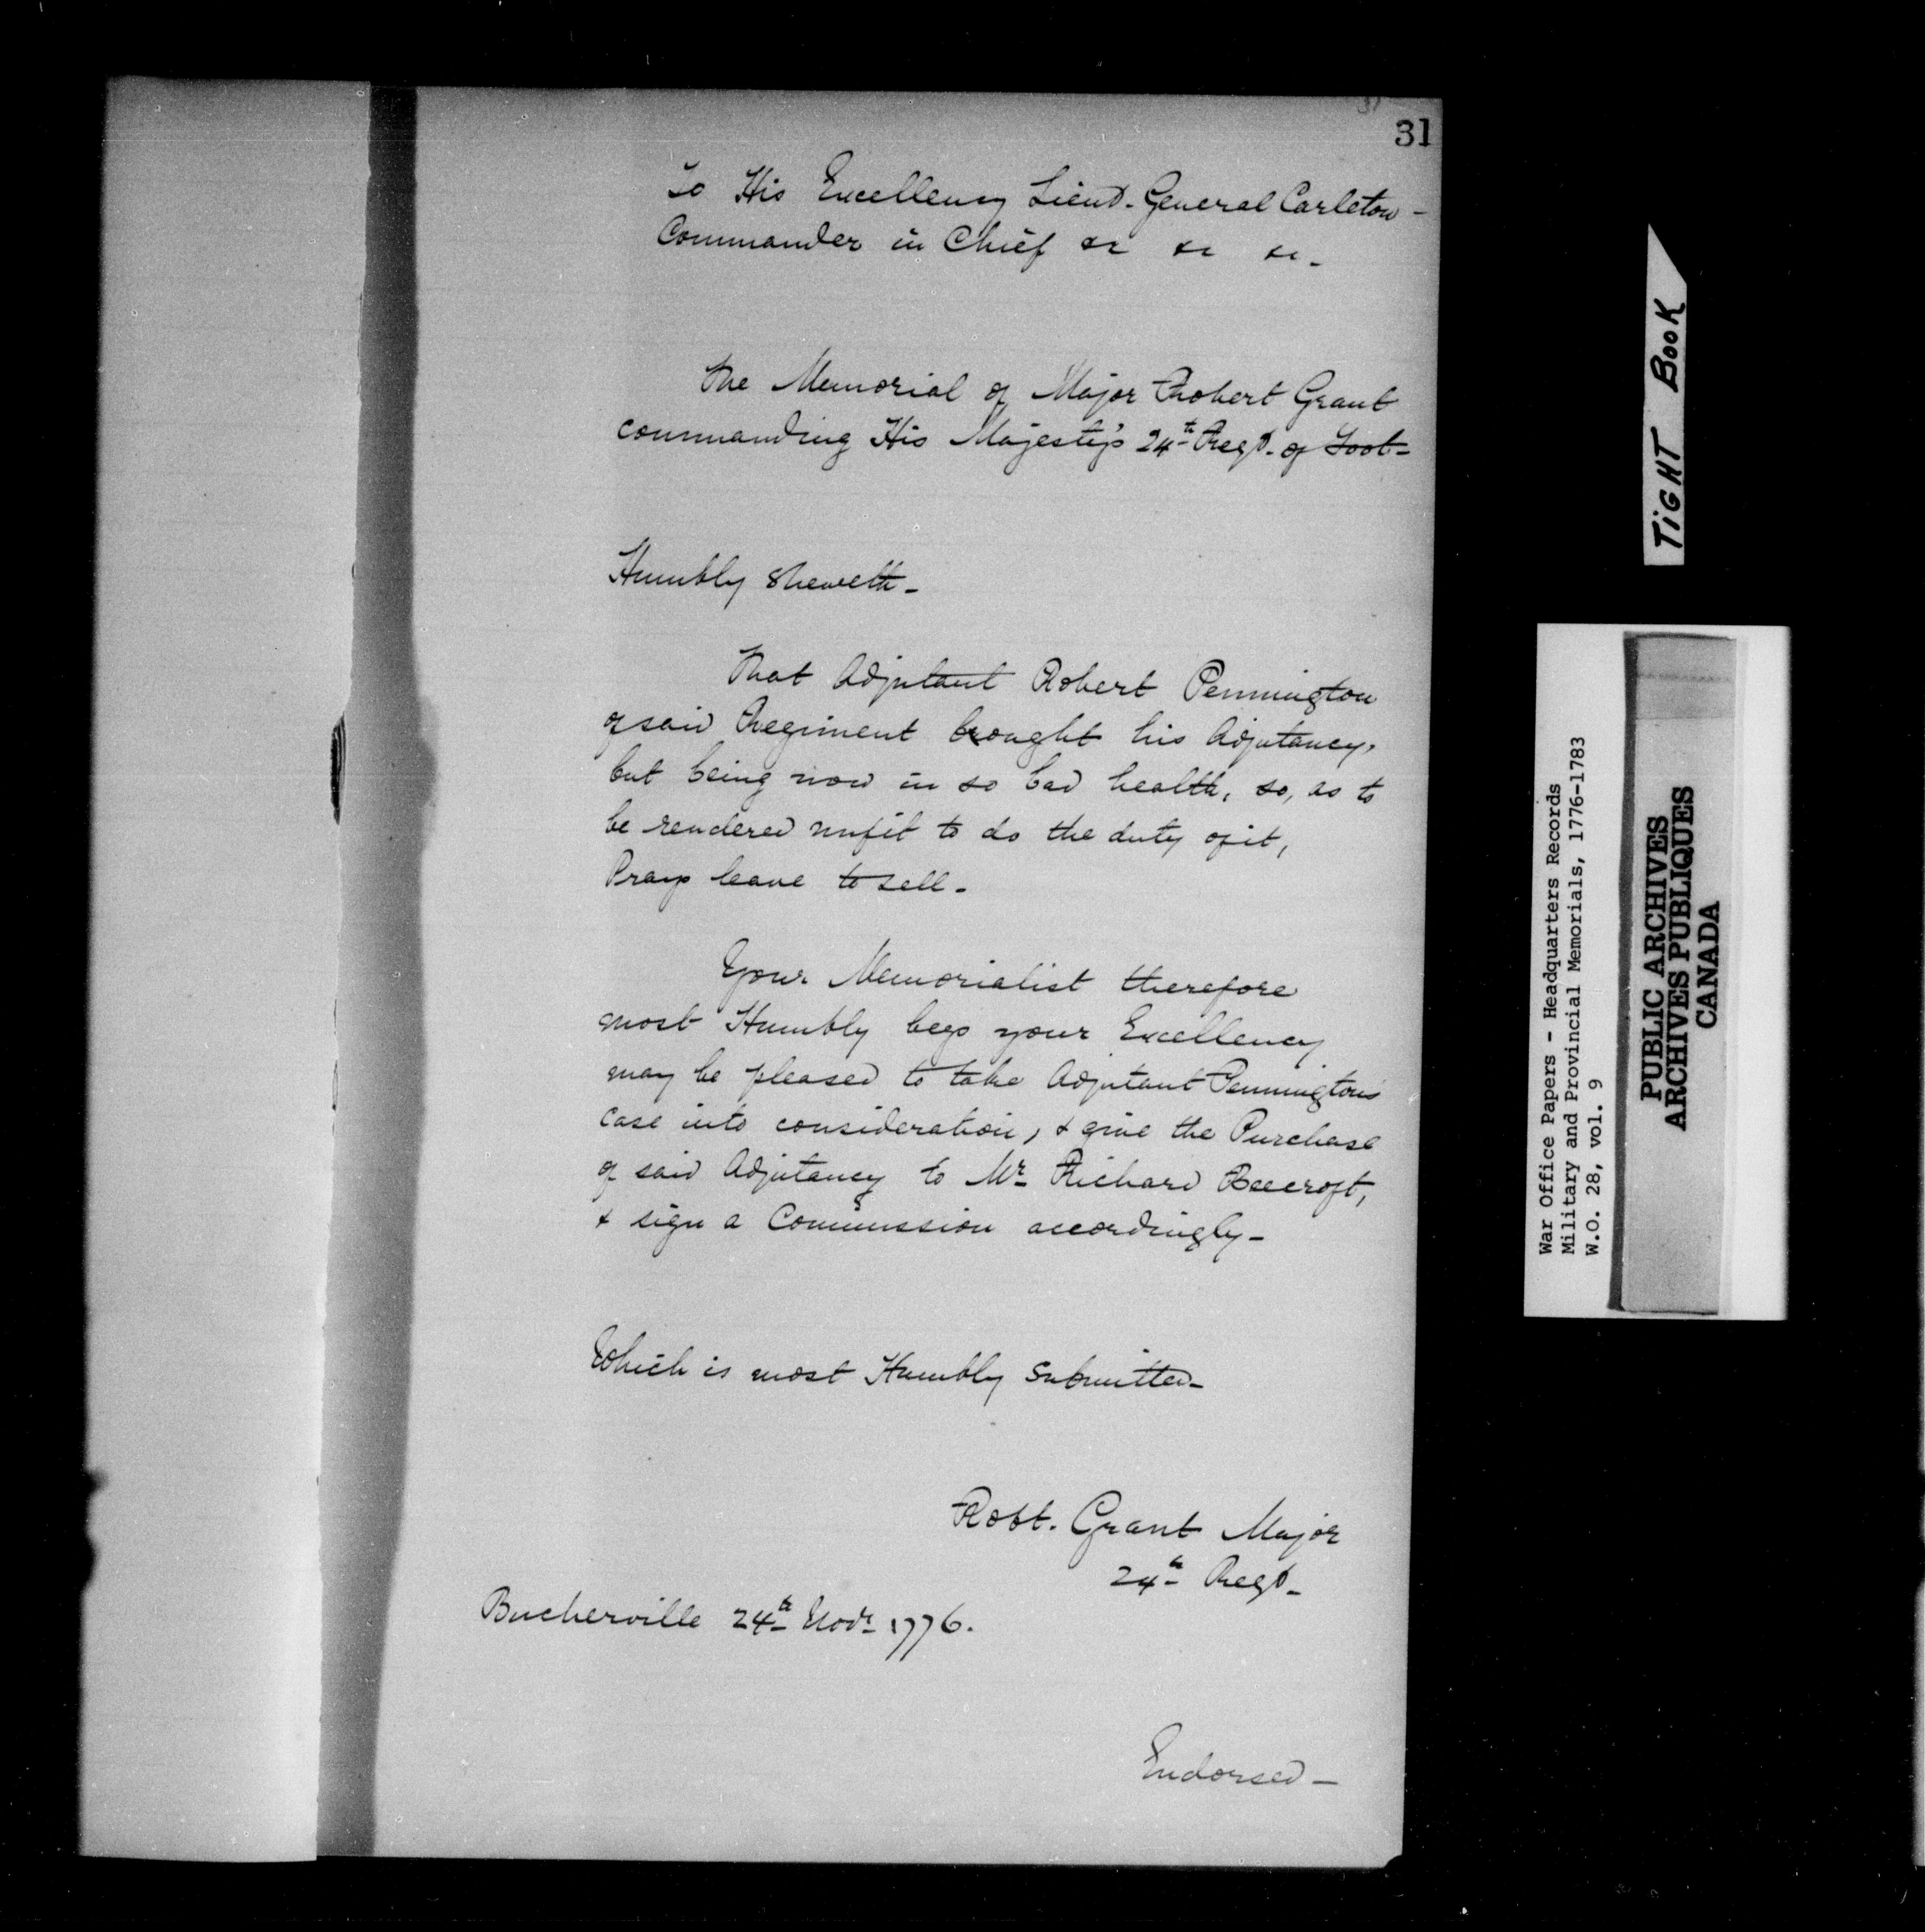 31
31
To His Excellency Lieut. General Carleton -
Commander in Chief &c &c &c.
The Memorial of Major Robert Grant
commanding His Majesty's 24th Regt. of Foot-
Humbly Sheweth-
That Adjutant Robert Pennington
of said Regiment brought his Adjutancy,
but being now in so bad health, so, as to
be rendered unfit to do the duty of it,
Prays leave to sell-
Your Memorialist therefore
most Humbly begs your Excellency
may be pleased to take Adjutant Pennington's
case into consideration, & give the Purchase
of said Adjutancy to Mr Richard Beecroft,
& sign a Commission accordingly-
Which is most Humbly Submitted-
Robt. Grant Major
24th Regt-
Bucherville 24th Novr 1776.
Endorsed-
TIGHT BOOK
War Office Papers - Headquarters Records
Military and Provincial Memorials, 1776-1783
W.O. 28, vol. 9
PUBLIC ARCHIVES
ARCHIVES PUBLIQUES
CANADA